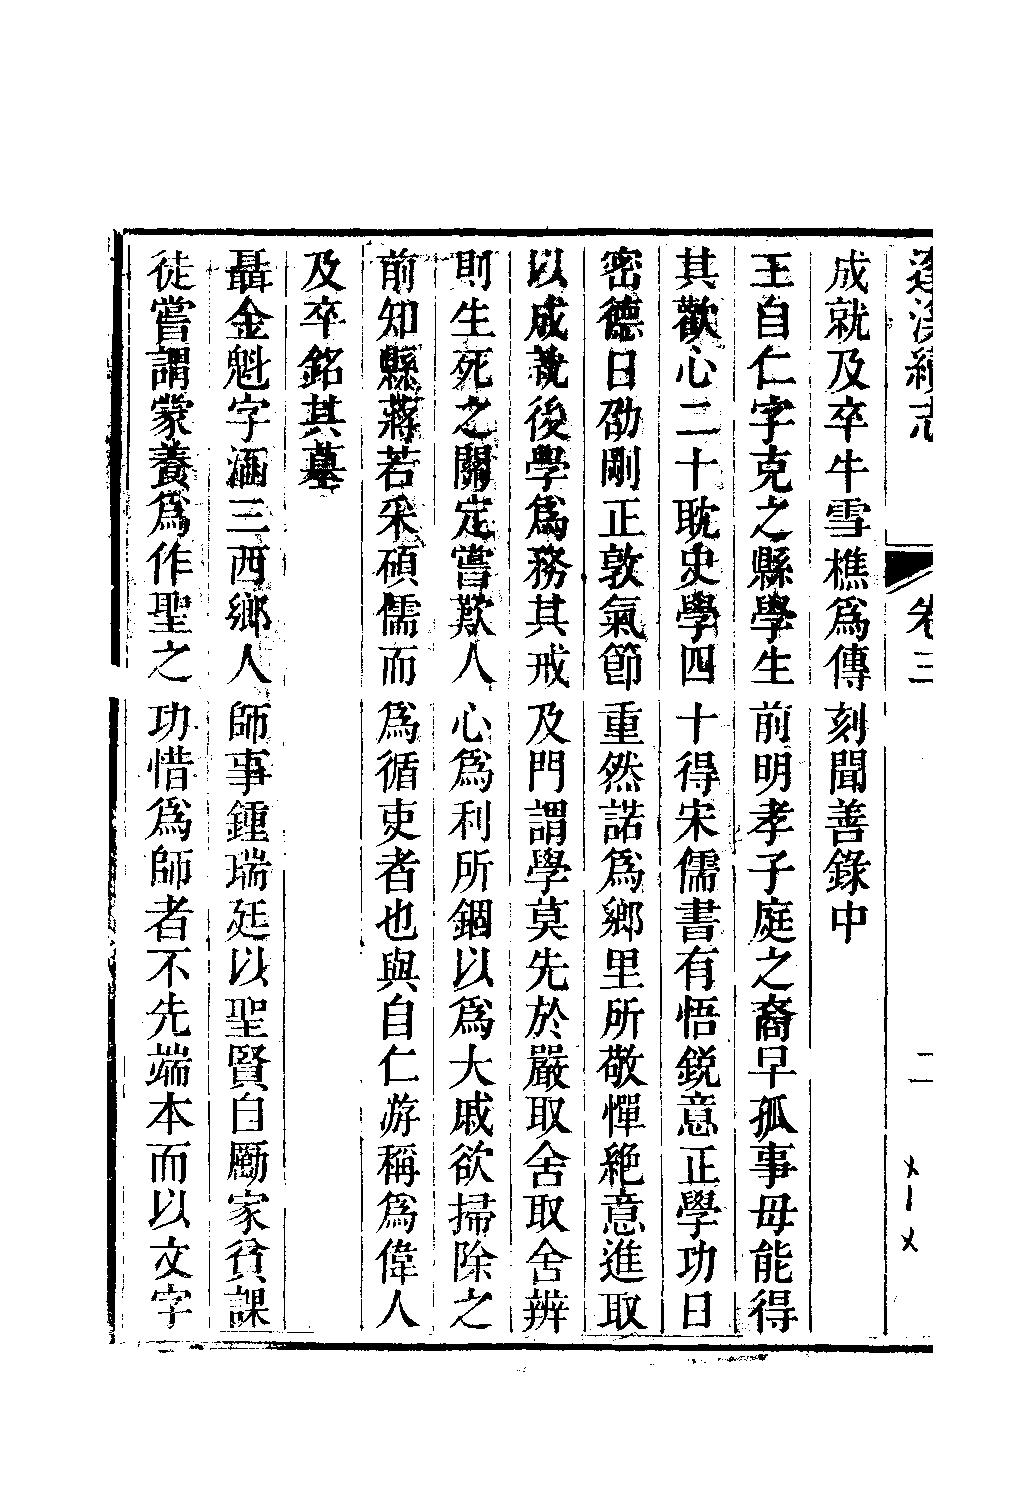 蓬溪續志　卷三　二
成就及卒牛雪樵爲傳刻聞善錄中
王自仁字克之縣學生前明孝子庭之裔早孤事毋能得
其歡心二十耽史學四十得宋儒書有悟銳意正學功日
密德日劭剛正敦氣節重然諾爲鄉里所敬憚絶意進取
以成就後學爲務其戒及門謂學莫先於嚴取舍取舍辨
則生死之關定嘗歎人心爲利所錮以爲大戚欲掃除之
前知縣蔣若采碩儒而爲循吏者也與自仁游稱爲偉人
及卒銘其墓
聶金魁字涵三西鄉人師事鍾瑞廷以聖賢自勵家貧課
徒嘗謂蒙養爲作聖之功惜爲師者不先端本而以文字